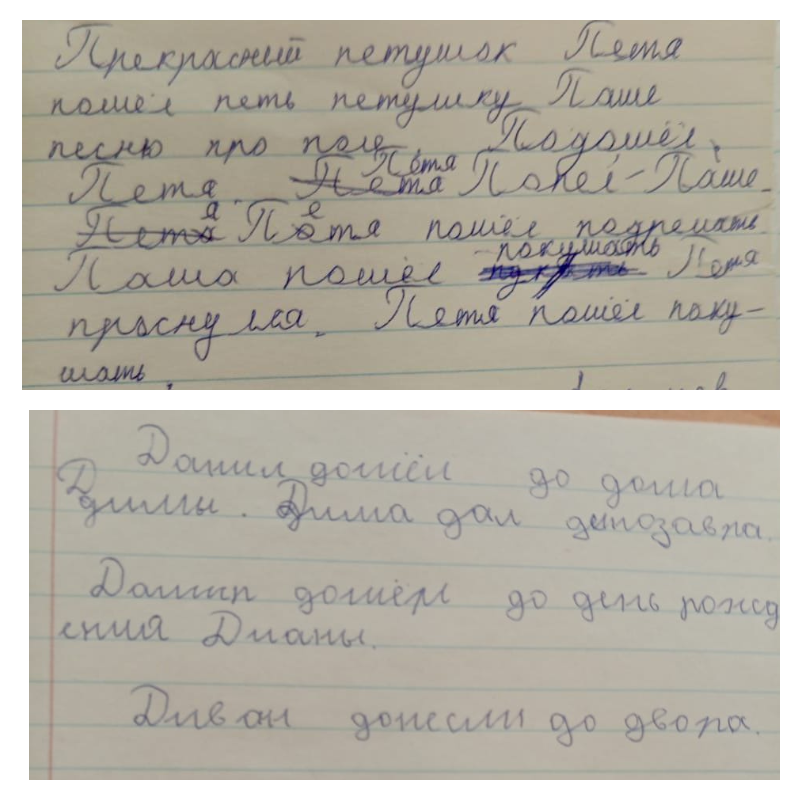 Прекрасний петушок Петя
пошёл петь петушку Паше
песню про поле. Подошёл
Петя. Петя Петя Попел Паше.
Петя Петя пошёл подремать
Паша пошёл покушать Петя
проснулся. Петя пошёл поку-
шать.
Данил дошёл до дома
Димы. Дима дал динозавра.
Данил дошёл до день рожд
ения Дианы.
Диван донесли до двора.